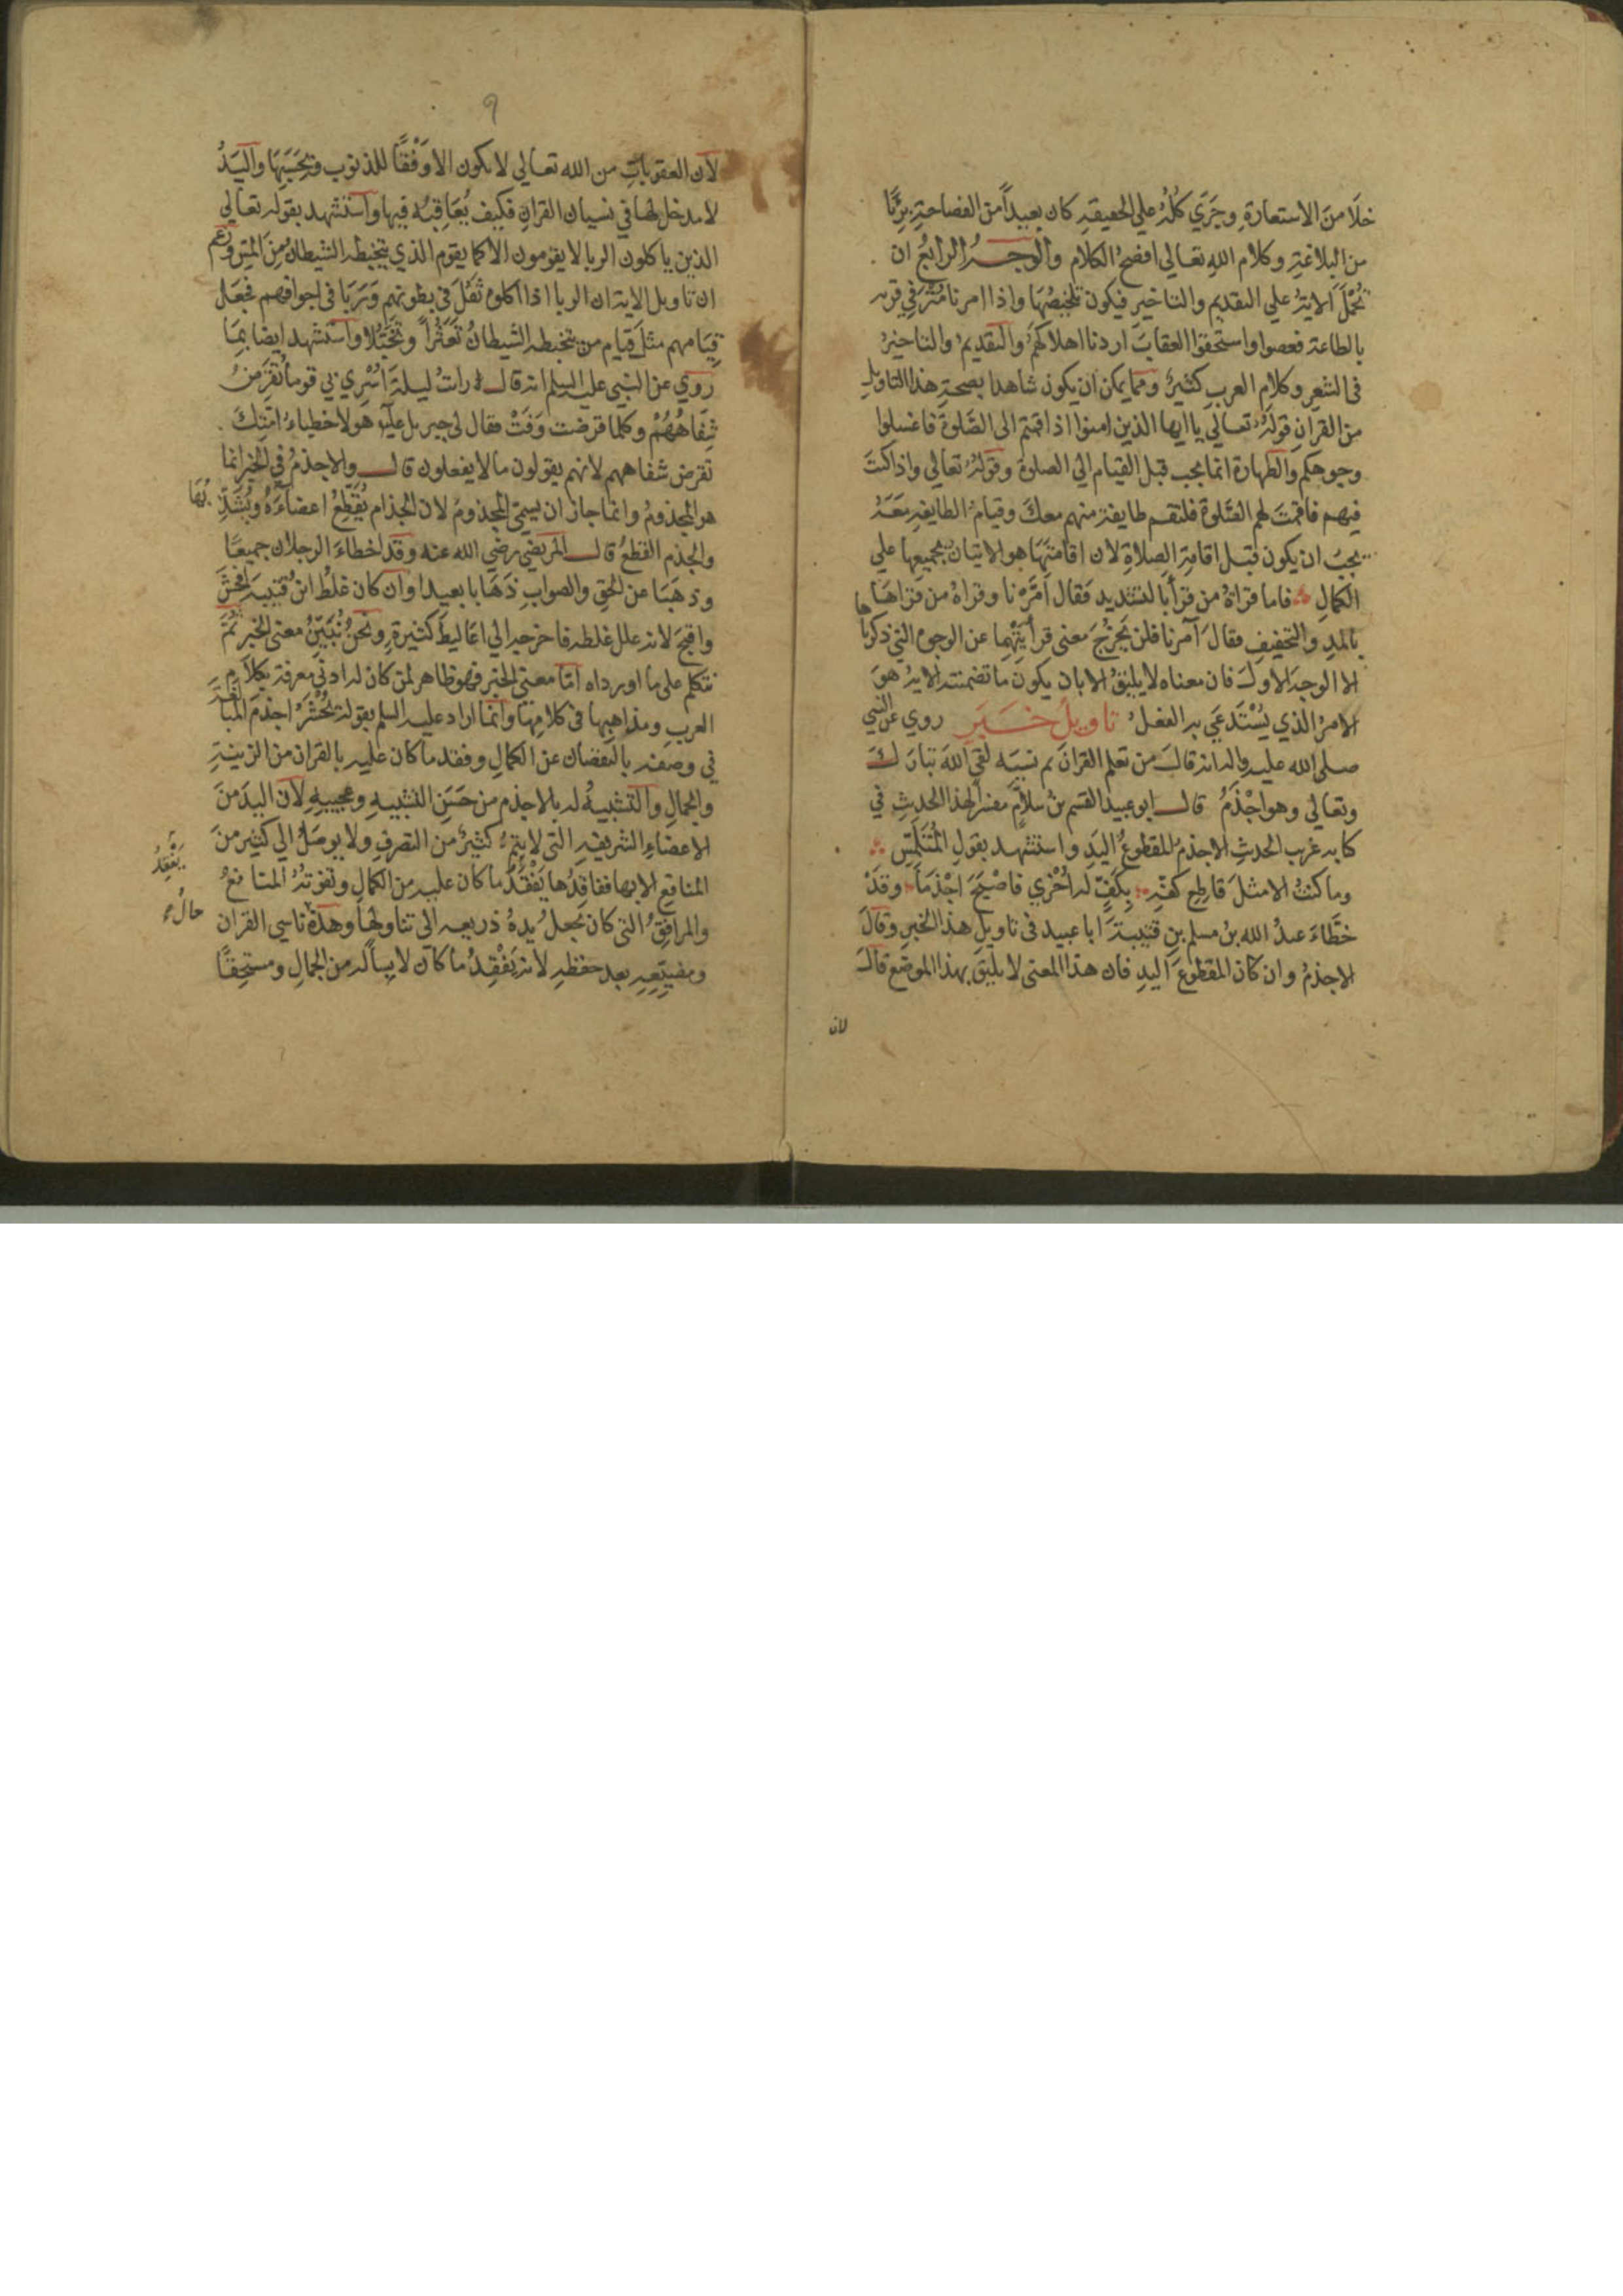 خلا من الاستعارة وجري كله علي الحقيقة كان بعيداً من الفصاحة برياً
من البلاغة وكلام الله تعالي افصح الكلام والوجه الرابع ان
تحمل الاية علي التقديم والتاخير فيكون تلخيصها واذا امرنا مترفي قرية
بالطاعة فعصوا واستحقوا العقاب اردنا اهلاكهم والتقديم والتاخير
في الشعر وكلام العرب كثير ومما يمكن ان يكون شاهدا بصحة هذا التاويل
من القران قوله تعالي يا ايها الذين امنوا اذا قمتم الى الصلوة فاغسلوا
وجوهكم والطهارة انما يجب قبل القيام الي الصلوة وقوله تعالي واذا كنت
فيهم فاقمت لهم الصلوة فلتقم طايفة منهم معك وقيام الطايفة معه
يجب ان يكون قبل اقامة الصلاة لان اقامتها هو الاتيان بجميعها علي
الكمال فاما قراة من قرأ بالتشديد فقال امرنا وقراة من قراها
بالمد والتخفيف فقال آمرنا فلن يخرج معنى قرأيتهما عن الوجوه التي ذكرناها
الا الوجه الاول فان معناه لا يليق الا بان يكون ما تضمنته الاية هو
الامر الذي يستدعي به الفعل تاويل خبر روي عن النبي
صلى الله عليه واله انه قال من تعلم القران ثم نسيه لقي الله تبارك
وتعالي وهو اجذم قال ابو عبيد القسم بن سلام مفسراً لهذا الحديث في
كتابه غريب الحديث الاجذم المقطوع اليد واستشهد بقول المتلمس
وما كنت الا مثل قاطع كفه بكف له أخري فاصبح اجذما وقد
خطاء عبد الله بن مسلم بن قتيبة ابا عبيد في تاويل هذا الخبر وقال
الاجذم وان كان المقطوع اليد فان هذا المعنى لا يليق بهذا الموضع قال
لان
٩
لان العقوبات من الله تعالي لا يكون الا وفقاً للذنوب وبحسبها واليد
لا مدخل لها في نسيان القران فكيف يعاقبه فيها واستشهد بقوله تعالي
الذين ياكلون الربا لا يقومون الا كما يقوم الذي يتخبطه الشيطان من المس وزعم
ان تاويل الاية ان الربا اذا اكلوه ثقل في بطونهم وربا في اجوافهم فجعل
قيامهم مثل قيام من يتخبطه الشيطان تعثراً وتخبلا واستشهد ايضا بما
روي عن النبي عليه السلم انه قال رايت ليلة اسري بي قوما تقرض
شفاههم وكلما قرضت وفت فقال لي جبريل عليه هولا خطباء امتك
تقرض شفاههم لانهم يقولون ما لا يفعلون قال والاجذم في الخبر انما
هو المجذوم وانما جاز ان يسمى المجذوم لان الجذام يقطع اعضاءه ويشذبها
والجذم القطع قال المرتضي رضي الله عنه وقد اخطاء الرجلان جميعا
وذهبا عن الحق والصواب ذهابا بعيدا وان كان غلط ابن قتيبة افحش
واقبح لانه علل غلطه فاخرجه الي اغاليط كثيرة ونحن نبين معنى الخبر ثم
نتكلم على ما اورداه اما معنى الخبر فهو ظاهر لمن كان له ادنى معرفة بكلام
العرب ومذاهبها في كلامها وانما اراد عليه السلم بقوله يحشر اجذم المبالغة
في وصفه بالنقصان عن الكمال وفقد ما كان عليه بالقران من الزينة
والجمال والتشبيه له بالاجذم من حسن التشبيه وعجيبه لان اليد من
الاعضاء الشريفة التي لا يتم كثير من التصرف ولا يوصل الي كثير من
المنافع الا بها ففاقدها يفقد ما كان عليه من الكمال وتفوته المنافع
والمرافق التي كان يجعل يده ذريعة الى تناولها وهذه حال ناسي القران
ومضيعه بعد حفظه لانه يفقد ما كان لابسا له من الجمال ومستحقا
يفقد